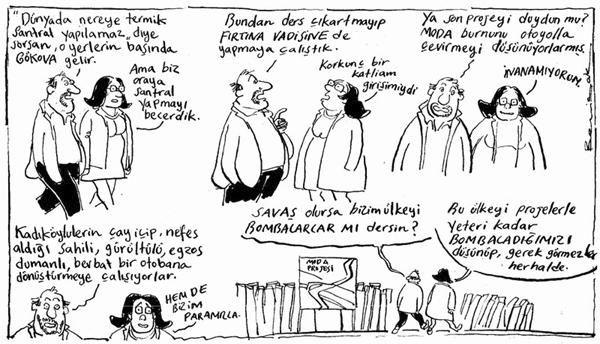 "Dünyada nereye termik
santral yapılamaz" diye
sorsan, o yerlerin başında
GÖKOVA
gelir.
Ama biz
oraya
santral
yapmayı
becerdik.
Bundan ders çıkartmayıp
FIRTINA VADİSİNE de
yapmaya çalıştık.
Korkunç bir
katliam
girişimiydi
Ya son projeyi duydun mu?
MODA burnunu otoyolla
çevirmeyi düşünüyorlarmış.
İNANAMIYORUM.
Kadıköylülerin çay içip, nefes
aldığı sahili, gürültülü, egzos
dumanlı, berbat bir otobana
dönüştürmeye çalışıyorlar.
HEM DE
BİZİM
PARAMIZLA.
SAVAŞ olursa bizim ülkeyi
BOMBALARLAR MI dersin?
MODA
PROJESİ
Bu ülkeyi projelerle
Yeteri kadar
BOMBALADIĞIMIZI
düşünüp, gerek görmezler
herhalde.